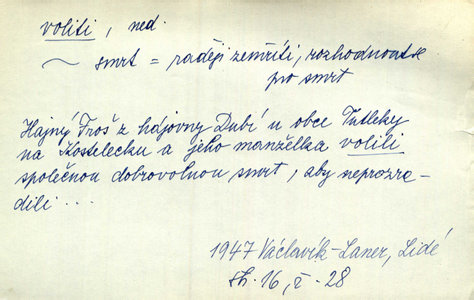 voliti, ned.
~ smrt = raději zemříti, rozhodnout se
pro smrt
Hajný Troš z hájovny Dubí u obce Tutleky
na Kostelecku a jeho manželka volili
společnou dobrovolnou smrt, aby neprozra-
dili ....
1947 Václavík-Laner, Lidé
sh. 16, ř. 28